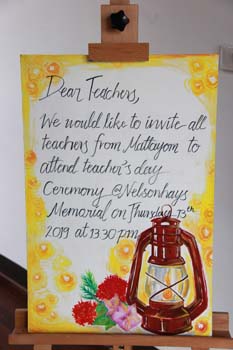 Dear Teachers,
We would like to invite all
teachers from Mattayom to
attend teacher's day
Ceremony @Nelsonhays
Memorial on Thursday 13th
2019 at 13:30 pm